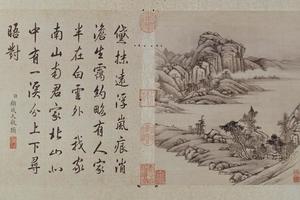 黛抹遠浮嵐痕消
澹生靄約略有人家
半在白雲外 我家
南山南君家北山北
中有一溪分上下尋
晤對